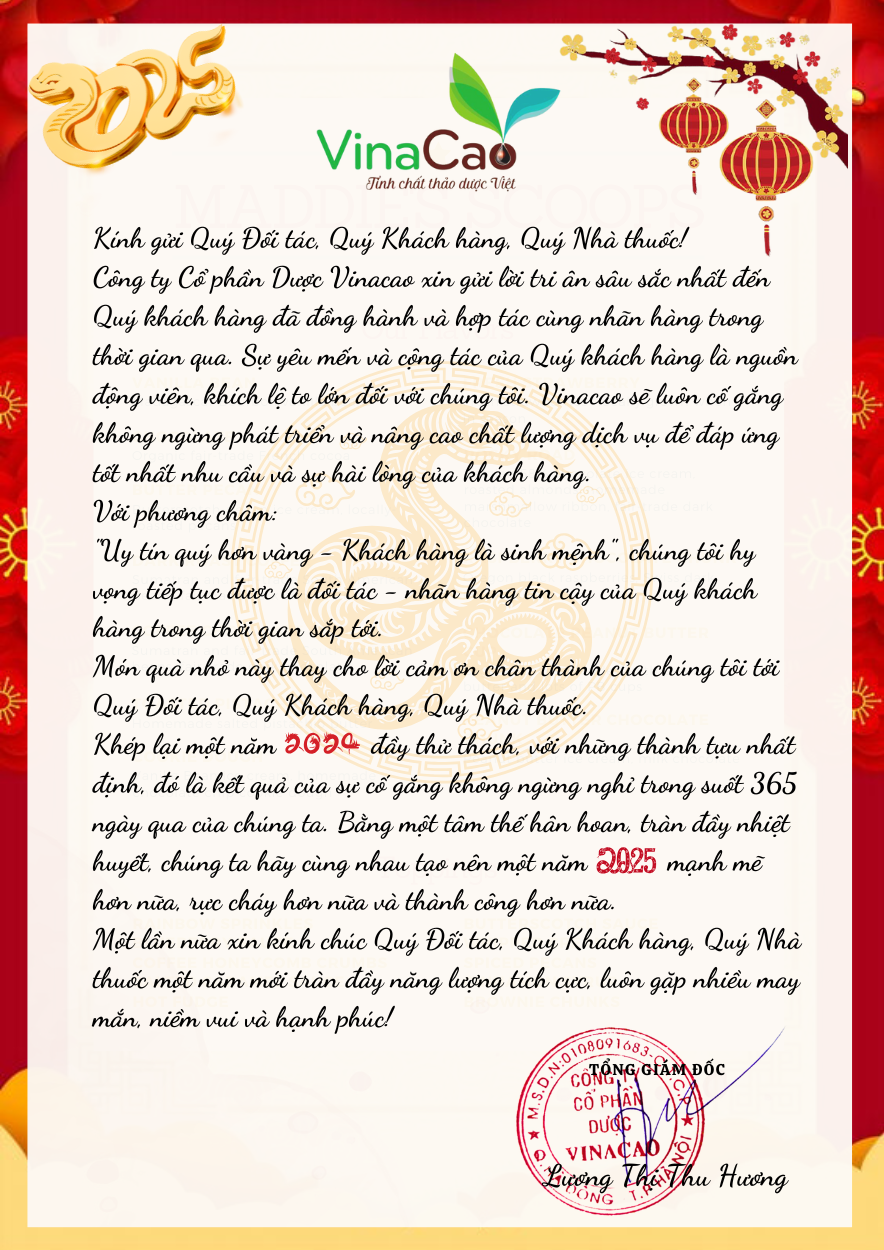 2025
VinaCao
Tinh chất thảo dược Việt
MADDIES SCOOPS
Kính gửi Quý Đối tác, Quý Khách hàng, Quý Nhà thuốc!
Công ty Cổ phần Dược Vinacao xin gửi lời tri ân sâu sắc nhất đến
Quý khách hàng đã đồng hành và hợp tác cùng nhãn hàng trong
thời gian qua. Sự yêu mến và cộng tác của Quý khách hàng là nguồn
động viên, khích lệ to lớn đối với chúng tôi. Vinacao sẽ luôn cố gắng
không ngừng phát triển và nâng cao chất lượng dịch vụ để đáp ứng
tốt nhất nhu cầu và sự hài lòng của khách hàng.
Với phương châm:
"Uy tín quý hơn vàng - Khách hàng là sinh mệnh", chúng tôi hy
vọng tiếp tục được là đối tác - nhãn hàng tin cậy của Quý khách
hàng trong thời gian sắp tới.
Món quà nhỏ này thay cho lời cảm ơn chân thành của chúng tôi tới
Quý Đối tác, Quý Khách hàng, Quý Nhà thuốc.
Khép lại một năm 2024 đầy thử thách, với những thành tựu nhất
định, đó là kết quả của sự cố gắng không ngừng nghỉ trong suốt 365
ngày qua của chúng ta. Bằng một tâm thế hân hoan, tràn đầy nhiệt
huyết, chúng ta hãy cùng nhau tạo nên một năm 2025 mạnh mẽ
hơn nữa, rực cháy hơn nữa và thành công hơn nữa.
Một lần nữa xin kính chúc Quý Đối tác, Quý Khách hàng, Quý Nhà
thuốc một năm mới tràn đầy năng lượng tích cực, luôn gặp nhiều may
mắn, niềm vui và hạnh phúc!
TỔNG GIÁM ĐỐC
M.S.D.N:0108091683-C.T.C.P
CÔNG TY
CỔ PHẦN
DƯỢC
VINACAO
T.P HÀ NỘI
Lương Thị Thu Hương